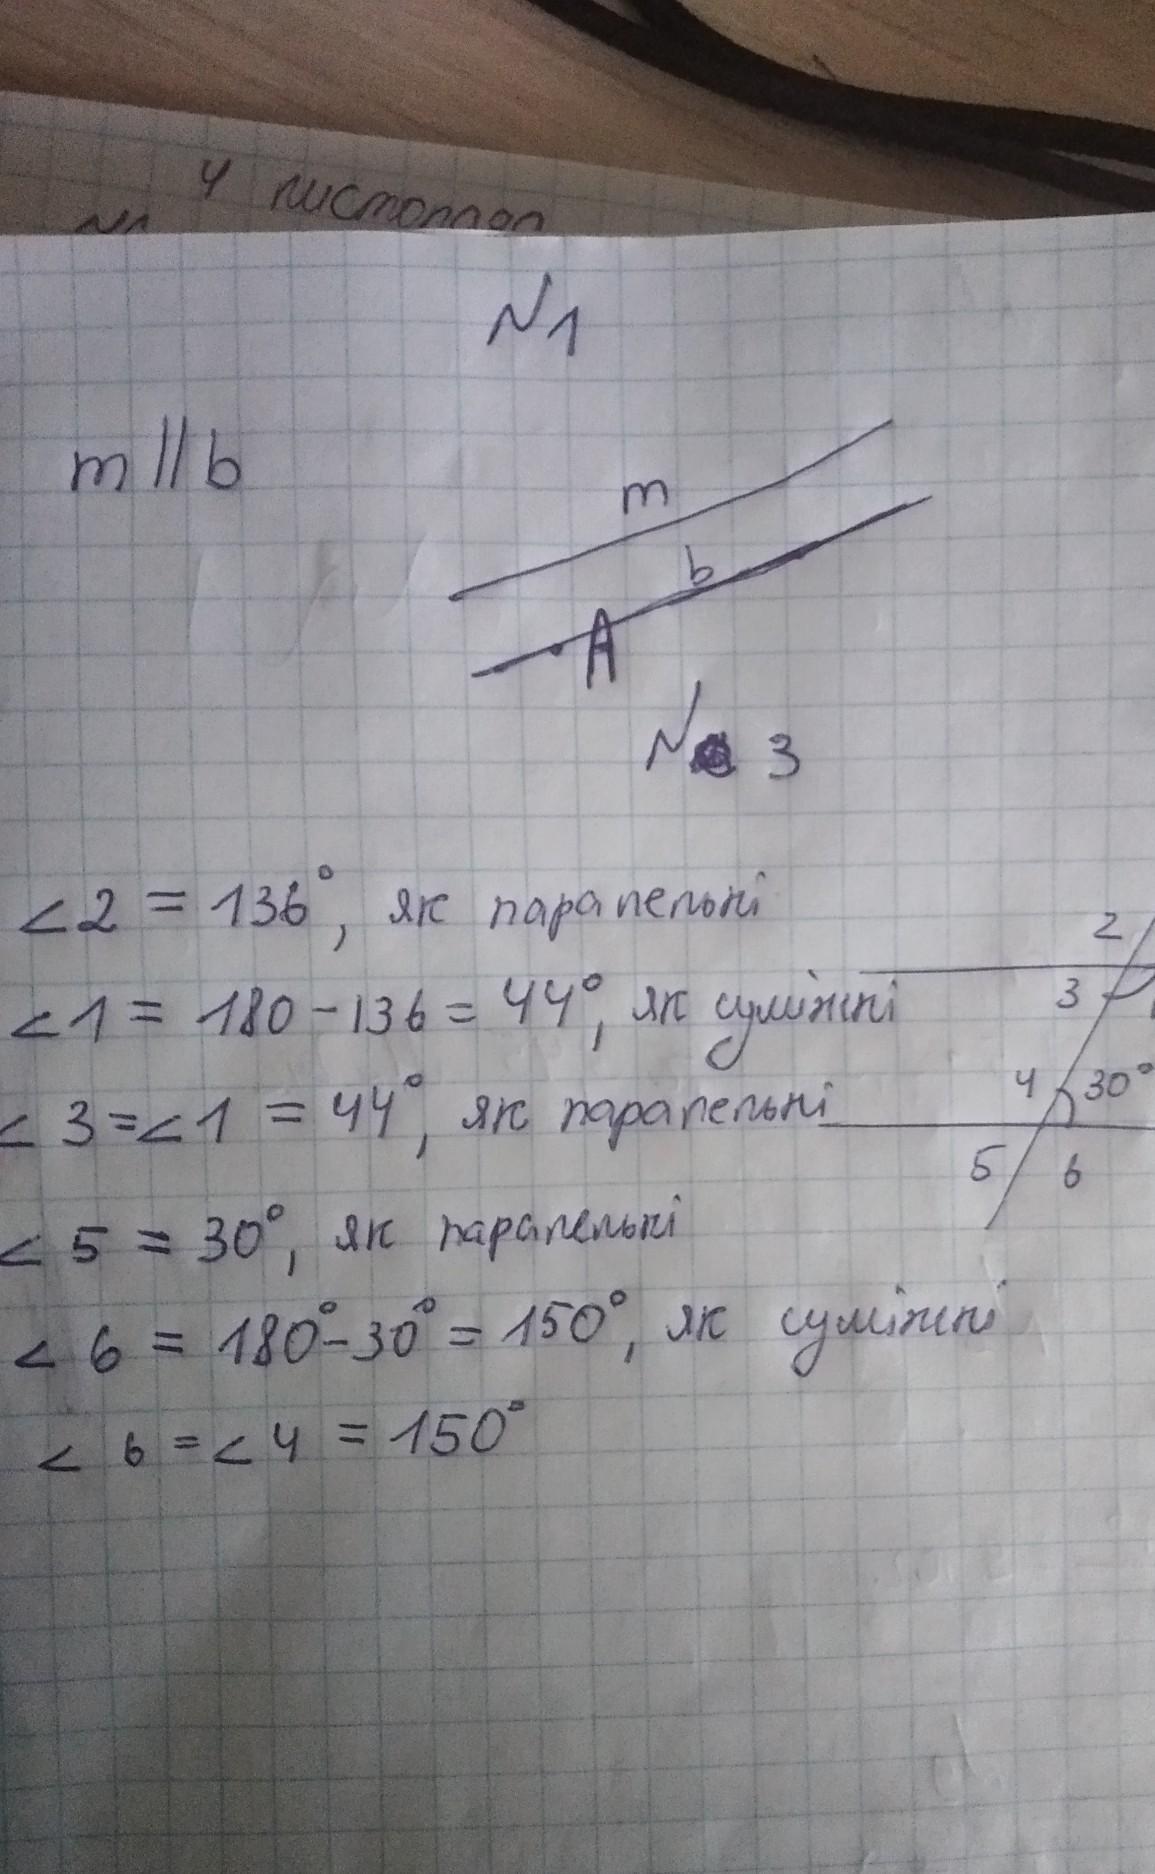 4 листопад
N1
N1
m || b
m
b
A
N 3
∠2 = 136°, як паралельні
∠1 = 180 - 136 = 44°, як суміжні
∠3 = ∠1 = 44°, як паралельні
∠5 = 30°, як паралельні
∠6 = 180° - 30° = 150°, як суміжні
∠6 = ∠4 = 150°
2
3
4 30°
5 6